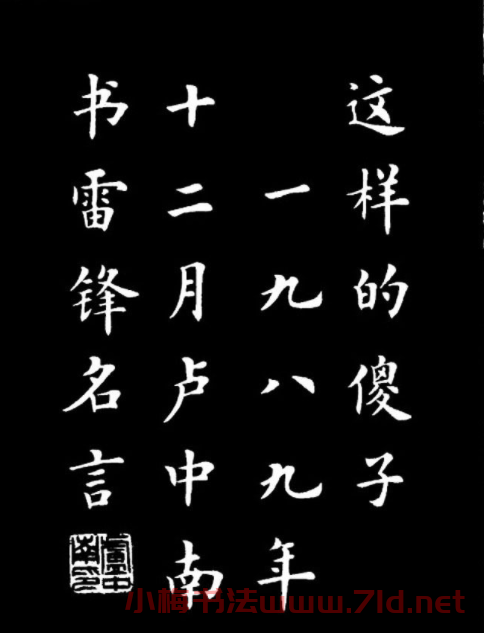 这样的傻子
一九八九年
十二月卢中南
书雷锋名言
小梅书法www.7ld.net